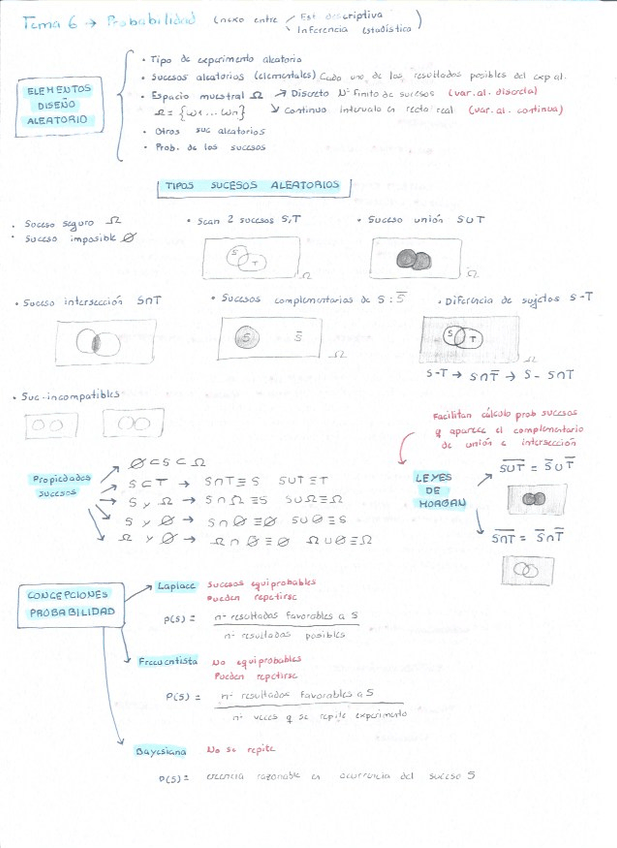 Tema 6 → Probabilidad (nexo entre Est. descriptiva
Inferencia estadística)
ELEMENTOS
DISEÑO
ALEATORIO
• Tipo de experimento aleatorio
• Sucesos aleatorios (elementales) Cada uno de los resultados posibles del exp al.
• Espacio muestral Ω → Discreto Nº finito de sucesos (var. al. discreta)
Ω = {ω1 ... ωn} ↘ Continuo Intervalo en recta real (var. al. continua)
• Otros suc aleatorios
• Prob. de los sucesos
TIPOS SUCESOS ALEATORIOS
• Suceso seguro Ω
• Suceso imposible Ø
• Sean 2 sucesos S, T
S T Ω
• Suceso unión S∪T
Ω
• Suceso intersección S∩T
• Sucesos complementarios de S : S̅
S S̅ Ω
• Diferencia de sujetos S-T
S T Ω
S-T → S∩T̅ → S - S∩T
• Suc-incompatibles
Facilitan cálculo prob sucesos
q aparece el complementario
de unión e intersección
Propiedades
sucesos
Ø ⊂ S ⊂ Ω
S ⊂ T → S∩T ≡ S S∪T ≡ T
S y Ω → S∩Ω ≡ S S∪Ω ≡ Ω
S y Ø → S∩Ø ≡ Ø S∪Ø ≡ S
Ω y Ø → Ω∩Ø ≡ Ø Ω∪Ø ≡ Ω
LEYES
DE
MORGAN
S̅∪̅T̅ = S̅∪T̅
S̅∩̅T̅ = S̅∩T̅
CONCEPCIONES
PROBABILIDAD
Laplace Sucesos equiprobables
Pueden repetirse
P(S) = nº resultados favorables a S
nº resultados posibles
Frecuentista No equiprobables
Pueden repetirse
P(S) = nº resultados favorables a S
nº veces q se repite experimento
Bayesiana No se repite
P(S) = creencia razonable en ocurrencia del suceso S